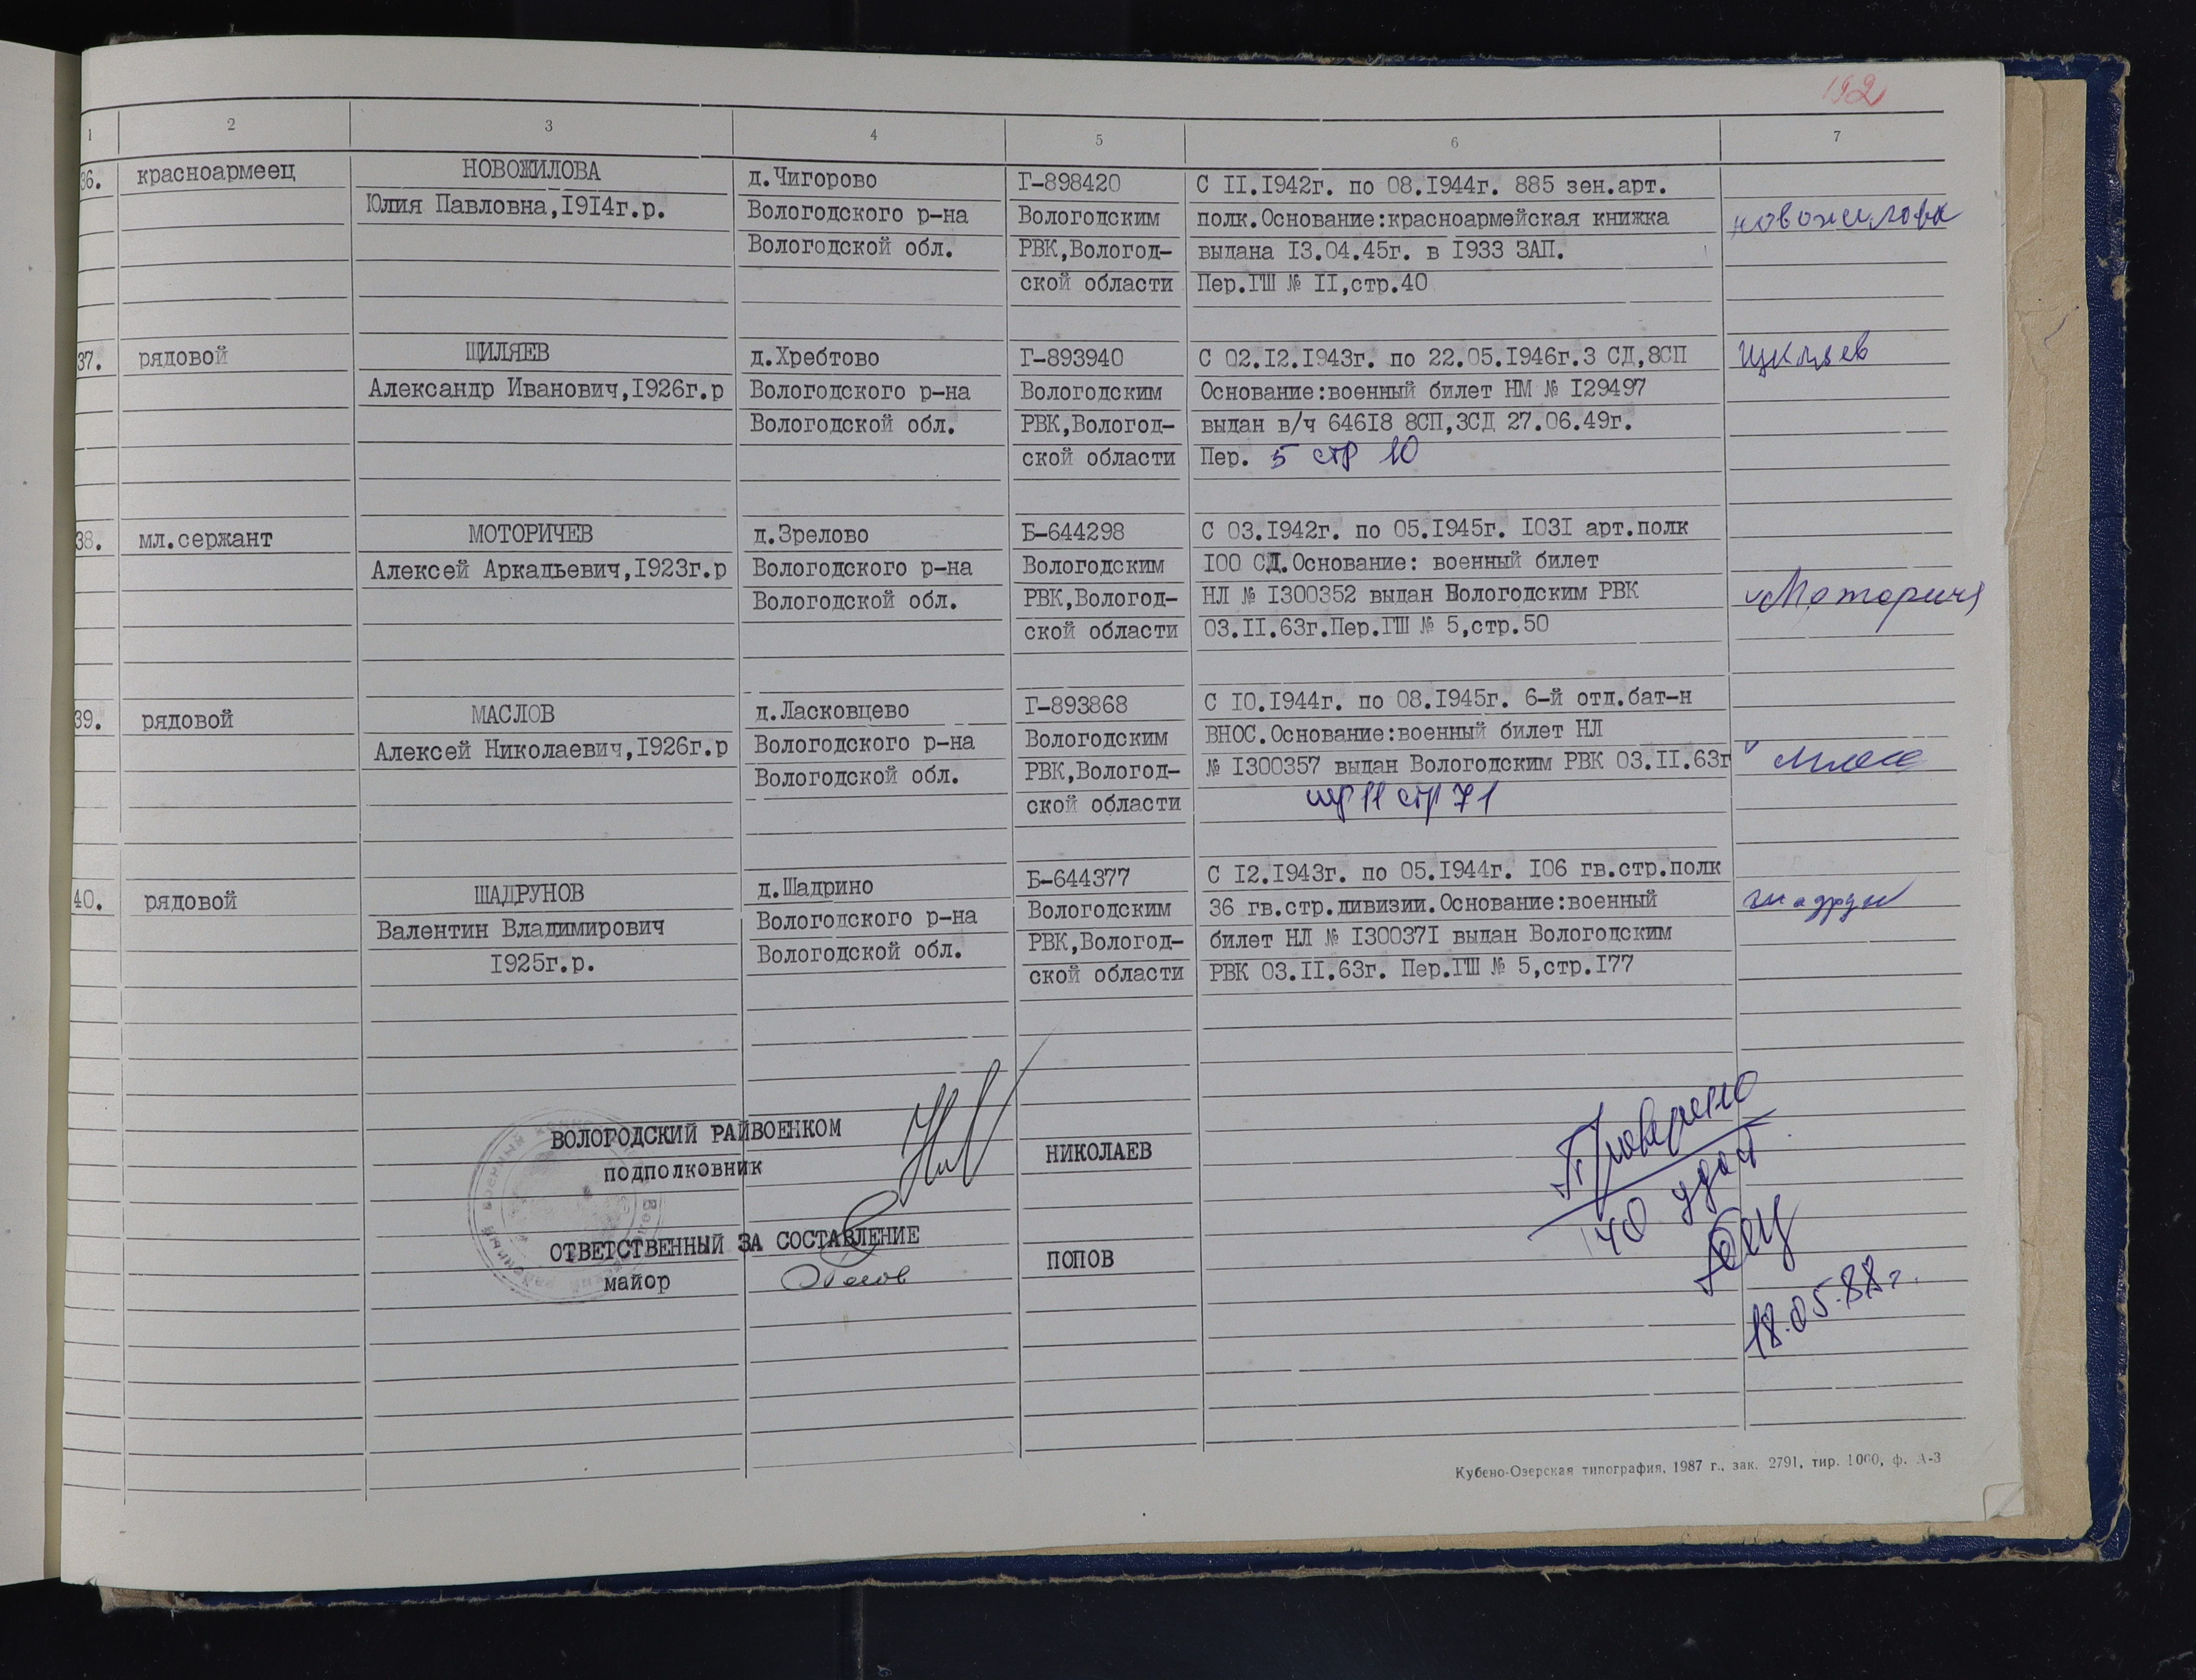 192
1 2 3 4 5 6 7
36. красноармеец НОВОЖИЛОВА д.Чигорово Г-898420 С II.I942г. по 08.I944г. 885 зен.арт.
Юлия Павловна,I9I4г.р. Вологодского р-на Вологодским полк.Основание:красноармейская книжка новожилова
Вологодской обл. РВК,Вологод- выдана I3.04.45г. в I933 ЗАП.
ской области Пер.ГШ № II,стр.40
37. рядовой ЩИЛЯЕВ д.Хребтово Г-893940 С 02.I2.I943г. по 22.05.I946г.3 СД,8СП
Александр Иванович,I926г.р Вологодского р-на Вологодским Основание:военный билет НМ № I29497
Вологодской обл. РВК,Вологод- выдан в/ч 646I8 8СП,3СД 27.06.49г.
ской области Пер. 5 стр 10
38. мл.сержант МОТОРИЧЕВ д.Зрелово Б-644298 С 03.I942г. по 05.I945г. I03I арт.полк
Алексей Аркадьевич,I923г.р Вологодского р-на Вологодским I00 СД.Основание: военный билет
Вологодской обл. РВК,Вологод- НЛ № I300352 выдан Вологодским РВК
ской области 03.II.63г.Пер.ГШ № 5,стр.50
39. рядовой МАСЛОВ д.Ласковцево Г-893868 С I0.I944г. по 08.I945г. 6-й отд.бат-н
Алексей Николаевич,I926г.р Вологодского р-на Вологодским ВНОС.Основание:военный билет НЛ
Вологодской обл. РВК,Вологод- № I300357 выдан Вологодским РВК 03.II.63г
ской области 11 стр 71
40. рядовой ШАДРУНОВ д.Шадрино Б-644377 С I2.I943г. по 05.I944г. I06 гв.стр.полк
Валентин Владимирович Вологодского р-на Вологодским 36 гв.стр.дивизии.Основание:военный шадрун
I925г.р. Вологодской обл. РВК,Вологод- билет НЛ № I30037I выдан Вологодским
ской области РВК 03.II.63г. Пер.ГШ № 5,стр.I77
ВОЛОГОДСКИЙ РАЙВОЕНКОМ
подполковник НИКОЛАЕВ
ОТВЕТСТВЕННЫЙ ЗА СОСТАВЛЕНИЕ
майор ПОПОВ
Проверено
40 удост
18.05.88г.
Кубено-Озерская типография, 1987 г., зак. 2791, тир. 1000, ф. А-3